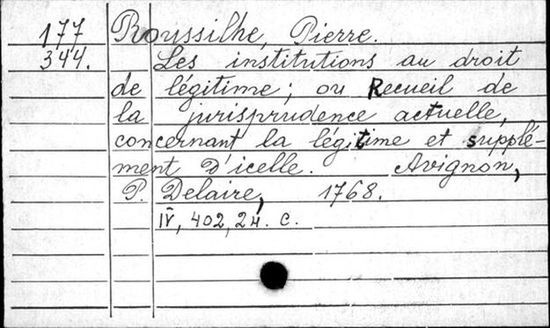 177 Roussilhe, Pierre.
344. Les institutions au droit
de légitime; ou Recueil de
la jurisprudence actuelle,
concernant la légitime et supplé-
ment d'icelle. Avignon,
P. Delaire, 1768.
IV, 402, 24. c.